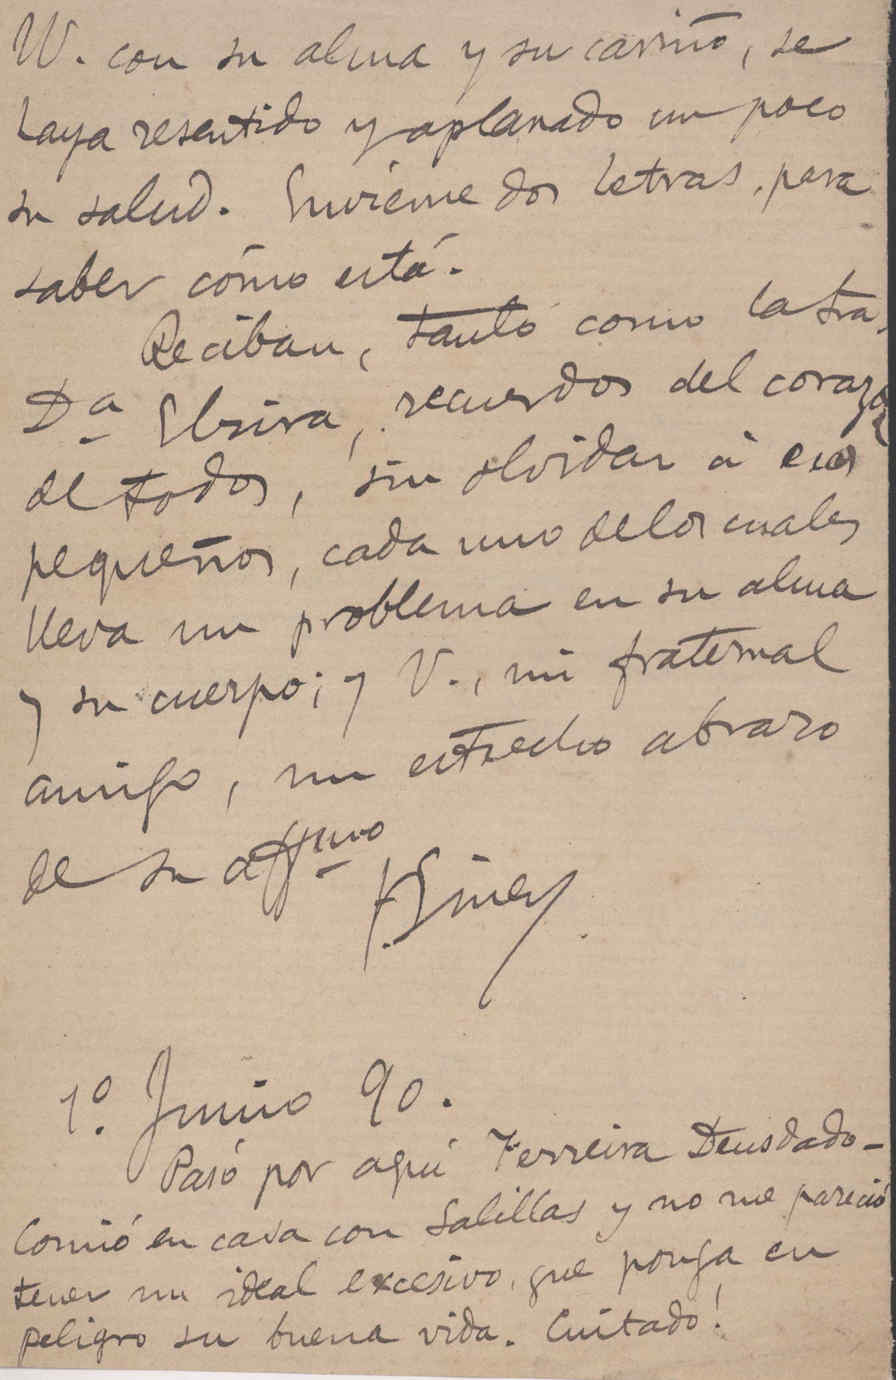 W. con su alma y su cariño, se
haya resentido y aplanado un poco
su salud. Envíeme dos letras, para
saber cómo está.
Reciban, tanto como la Sra.
Dª Elvira, recuerdos del corazón
de todos, sin olvidar á esos
pequeños, cada uno de los cuales
lleva un problema en su alma
y su cuerpo; y V., mi fraternal
amigo, un estrecho abrazo
de su affmo
F. Giner
1º. Junio 90.
Pasó por aquí Ferreira Deusdado -
Comió en casa con Salillas y no me pareció
tener un ideal excesivo, que ponga en
peligro su buena vida. Cuitado!